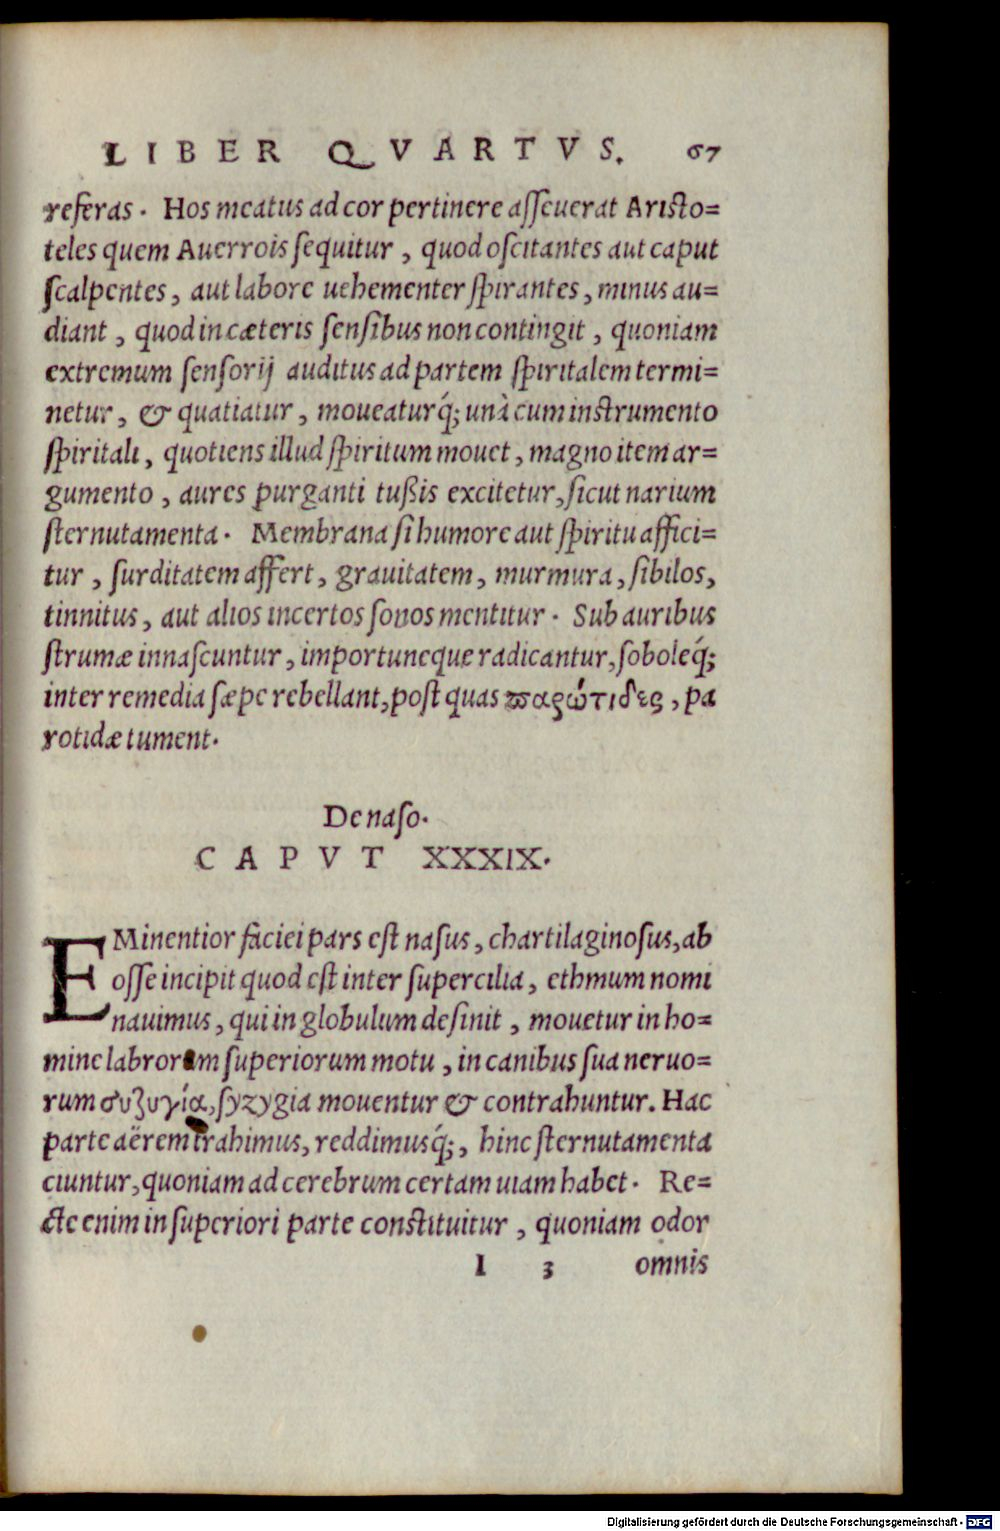 LIBER QVARTVS. 67
referas. Hos meatus ad cor pertinere asseuerat Aristo=
teles quem Auerrois sequitur, quod oscitantes aut caput
scalpentes, aut labore uehementer spirantes, minus au=
diant, quod in cæteris sensibus non contingit, quoniam
extremum sensorij auditus ad partem spiritalem termi=
netur, & quatiatur, moueaturq́; unà cum instrumento
spiritali, quotiens illud spiritum mouet, magno item ar=
gumento, aures purganti tußis excitetur, sicut narium
sternutamenta. Membrana si humore aut spiritu affici=
tur, surditatem affert, grauitatem, murmura, sibilos,
tinnitus, aut alios incertos sonos mentitur. Sub auribus
strumæ innascuntur, importuneque radicantur, soboleq́;
inter remedia sæpe rebellant, post quas παρώτιδες, pa
rotidæ tument.
De naso.
CAPVT XXXIX.
EMinentior faciei pars est nasus, chartilaginosus, ab
osse incipit quod est inter supercilia, ethmum nomi
nauimus, qui in globulum desinit, mouetur in ho=
mine labrorum superiorum motu, in canibus sua neruo=
rum συζυγία, syzygia mouentur & contrahuntur. Hac
parte aërem trahimus, reddimusq́;, hinc sternutamenta
ciuntur, quoniam ad cerebrum certam uiam habet. Re=
cte enim in superiori parte constituitur, quoniam odor
I 3 omnis
Digitalisierung gefördert durch die Deutsche Forschungsgemeinschaft - DFG